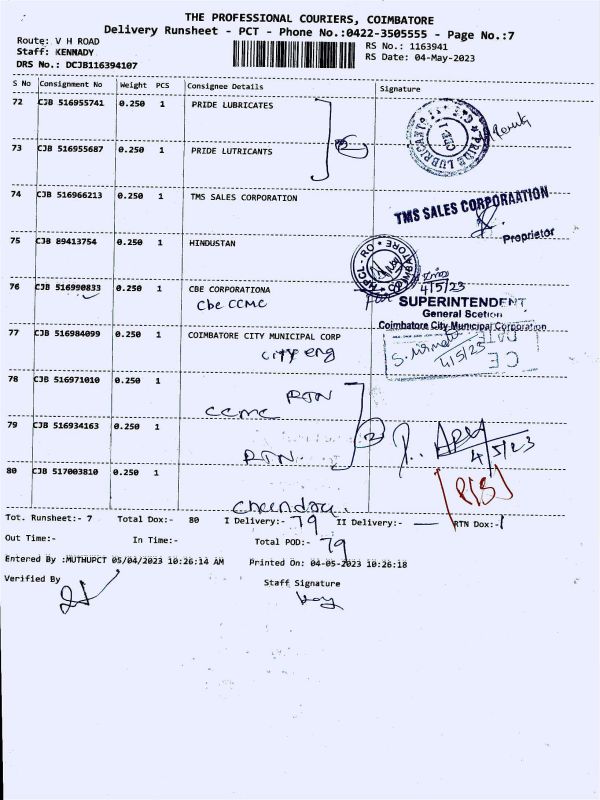 THE PROFESSIONAL COURIERS, COIMBATORE
Delivery Runsheet - PCT - Phone No.:0422-3505555 - Page No.:7
Route: V H ROAD
Staff: KENNADY
DRS No.: DCJB116394107
RS No.: 1163941
RS Date: 04-May-2023
S No Consignment No Weight PCS Consignee Details Signature
72 CJB 516955741 0.250 1 PRIDE LUBRICATES
73 CJB 516955687 0.250 1 PRIDE LUTRICANTS
2
PRIDE LUBRICANTS
CBE
74 CJB 516966213 0.250 1 TMS SALES CORPORATION
TMS SALES CORPORAATION
Proprietor
75 CJB 89413754 0.250 1 HINDUSTAN
HPCL - RO
4/5/23
76 CJB 516990833 0.250 1 CBE CORPORATIONA
Cbe CCMC
SUPERINTENDENT
General Scetion
Coimbatore City Municipal Corporation
77 CJB 516984099 0.250 1 COIMBATORE CITY MUNICIPAL CORP
City eng
4/5/23
DATE
CE
78 CJB 516971010 0.250 1
RTN
CCMC
79 CJB 516934163 0.250 1
RTN
2
4/5/23
80 CJB 517003810 0.250 1
Tot. Runsheet:- 7 Total Dox:- 80 I Delivery:- 79 II Delivery:- — RTN Dox:- 1
Out Time:- In Time:- Total POD:- 79
Entered By :MUTHUPCT 05/04/2023 10:26:14 AM Printed On: 04-05-2023 10:26:18
Verified By Staff Signature